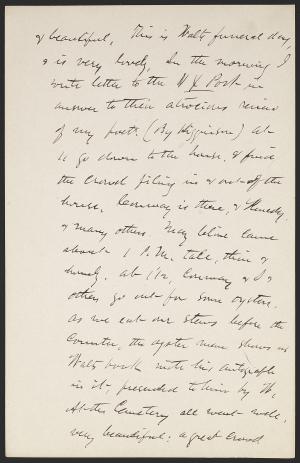 & beautiful. This is Walts funeral day,
& is very lovely. In the morning I
write letter to the N Y Post in
answer to their atrocious review
of my poet. (By Higginson) At
11 go down to the house, & find
the crowd filing in & out of the
house. Conway is there, & Kennedy.
& many others. May blime came
about 1 P.M. tall, thin &
homely. At 1 1/2, Conway & I &
others go out for some oysters.
As we eat our stews before the
Counter, the oyster man shows us
Walts book with his autograph
in it, presented to him by W.
At the Cemetery all went well,
very beautiful; a great crowd